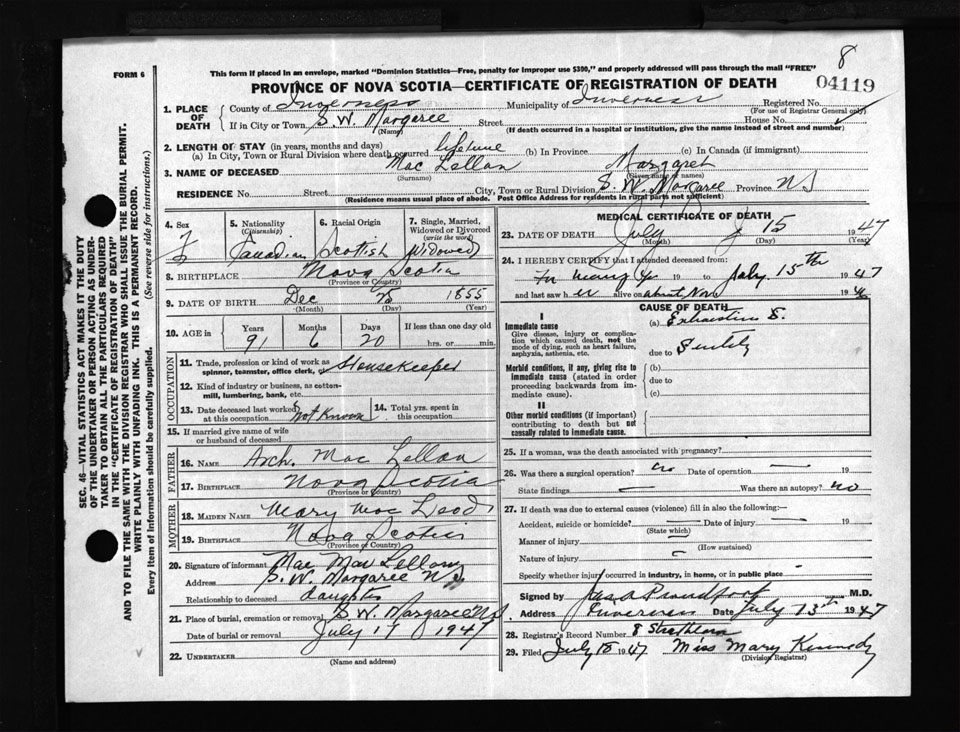 8
FORM 6
This form if placed in an envelope, marked "Dominion Statistics—Free, penalty for improper use $300," and properly addressed will pass through the mail "FREE"
PROVINCE OF NOVA SCOTIA—CERTIFICATE OF REGISTRATION OF DEATH
04119
1. PLACE OF DEATH
County of Inverness Municipality of Inverness Registered No.
(For use of Registrar General only)
If in City or Town S. W. Margaree Street House No.
(Name) (If death occurred in a hospital or institution, give the name instead of street and number)
2. LENGTH OF STAY (in years, months and days)
(a) In City, Town or Rural Division where death occurred lifetime (b) In Province (c) In Canada (if immigrant)
3. NAME OF DECEASED Mac Lellan Margaret
(Surname) (Given name or names)
RESIDENCE No. Street City, Town or Rural Division S. W. Margaree Province N S
(Residence means usual place of abode. Post Office Address for residents in rural parts not sufficient)
4. Sex
5. Nationality (Citizenship)
6. Racial Origin
7. Single, Married, Widowed or Divorced (write the word)
F Canadian Scottish Widowed
8. BIRTHPLACE Nova Scotia
(Province or Country)
9. DATE OF BIRTH Dec 25 1855
(Month) (Day) (Year)
10. AGE in Years Months Days If less than one day old
91 6 20 hrs. or min.
OCCUPATION
11. Trade, profession or kind of work as spinner, teamster, office clerk, or Housekeeper
12. Kind of industry or business, as cotton-mill, lumbering, bank, etc.
13. Date deceased last worked at this occupation Not Known
14. Total yrs. spent in this occupation
15. If married give name of wife or husband of deceased
FATHER
16. NAME Arch. Mac Lellan
17. BIRTHPLACE Nova Scotia
(Province or Country)
MOTHER
18. MAIDEN NAME Mary Mac Leod
19. BIRTHPLACE Nova Scotia
(Province or Country)
20. Signature of informant Mac Lellan
Address S. W. Margaree N S
Relationship to deceased daughter
21. Place of burial, cremation or removal S. W. Margaree N S
Date of burial or removal July 17 1947
22. UNDERTAKER
(Name and address)
MEDICAL CERTIFICATE OF DEATH
23. DATE OF DEATH July 15 1947
(Month) (Day) (Year)
24. I HEREBY CERTIFY that I attended deceased from:
For many yrs 19 to July 15th 1947
and last saw her alive on about Nov 1946
CAUSE OF DEATH
I
Immediate cause
Give disease, injury or complication which caused death, not the mode of dying, such as heart failure, asphyxia, asthenia, etc.
(a) Exhaustion
due to Senility
Morbid conditions, if any, giving rise to immediate cause (stated in order proceeding backwards from immediate cause).
(b)
due to
(c)
II
Other morbid conditions (if important) contributing to death but not causally related to immediate cause.
25. If a woman, was the death associated with pregnancy?
26. Was there a surgical operation? no Date of operation — 19
State findings — Was there an autopsy? no
27. If death was due to external causes (violence) fill in also the following:—
Accident, suicide or homicide? — Date of injury — 19
(State which)
Manner of injury
(How sustained)
Nature of injury
Specify whether injury occurred in industry, in home, or in public place
Signed by Jas A Proudfoot M.D.
Address Inverness Date July 1947
28. Registrar's Record Number 8 Strathlorne
29. Filed July 18 1947 Miss Mary Kennedy
(Division Registrar)
SEC. 46—VITAL STATISTICS ACT MAKES IT THE DUTY
OF THE UNDERTAKER OR PERSON ACTING AS UNDER-
TAKER TO OBTAIN ALL THE PARTICULARS REQUIRED
IN THE "CERTIFICATE OF REGISTRATION OF DEATH"
AND TO FILE THE SAME WITH THE DIVISION REGISTRAR WHO SHALL ISSUE THE BURIAL PERMIT.
WRITE PLAINLY WITH UNFADING INK. THIS IS A PERMANENT RECORD.
Every item of Information should be carefully supplied. (See reverse side for instructions.)